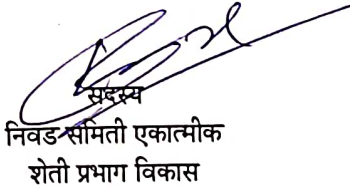 सदस्य
निवड समिती एकात्मीक
शेती प्रभाग विकास